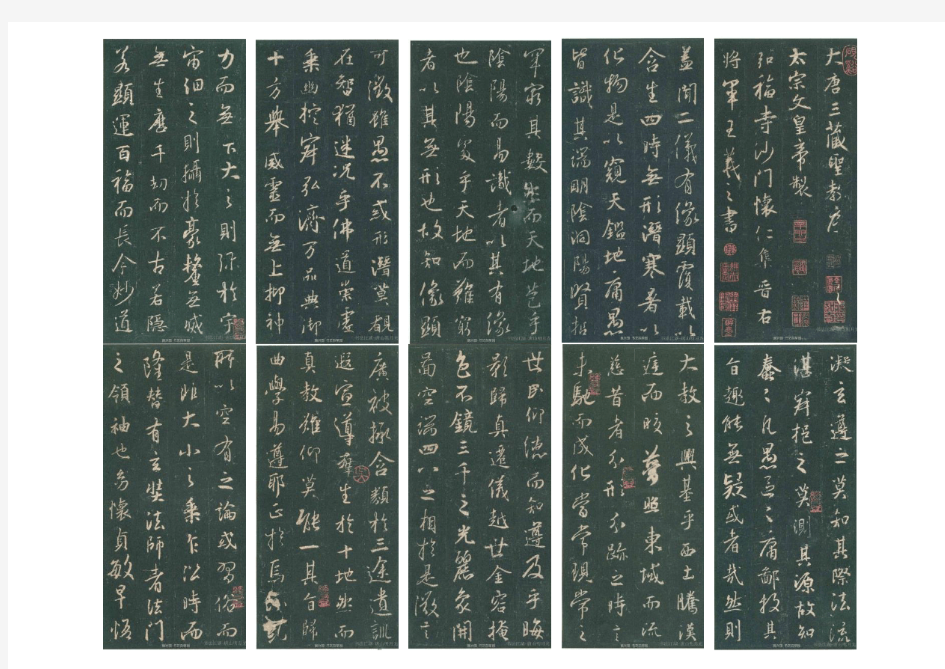 大唐三藏聖教序
太宗文皇帝製
弘福寺沙門懷仁集晉右
將軍王羲之書
蓋聞二儀有像顯覆載以
含生四時無形潛寒暑以
化物是以窺天鑑地庸愚
皆識其端明陰洞陽賢哲
罕窮其數然而天地苞乎
陰陽而易識者以其有像
也陰陽處乎天地而難窮
者以其無形也故知像顯
可徵雖愚不惑形潛莫覩
在智猶迷況乎佛道崇虛
乘幽控寂弘濟万品典御
十方舉威靈而無上抑神
力而無下大之則弥於宇
宙細之則攝於豪釐無滅
無生歷千劫而不古若隱
若顯運百福而長今妙道
凝玄遵之莫知其際法流
湛寂挹之莫測其源故知
蠢々凡愚區々庸鄙投其
旨趣能無疑或者哉然則
大教之興基乎西土騰漢
庭而皎夢照東域而流
慈昔者分形分跡之時言
未馳而成化當常現常之
世民仰德而知遵及乎晦
影歸真遷儀越世金容掩
色不鏡三千之光麗象開
圖空端四八之相於是微言
廣被拯含類於三途遺訓
遐宣導群生於十地然而
真教難仰莫能一其旨歸
曲學易遵邪正於焉紛糺
所以空有之論或習俗而
是非大小之乘乍沿時而
隆替有玄奘法師者法門
之領袖也幼懷貞敏早悟